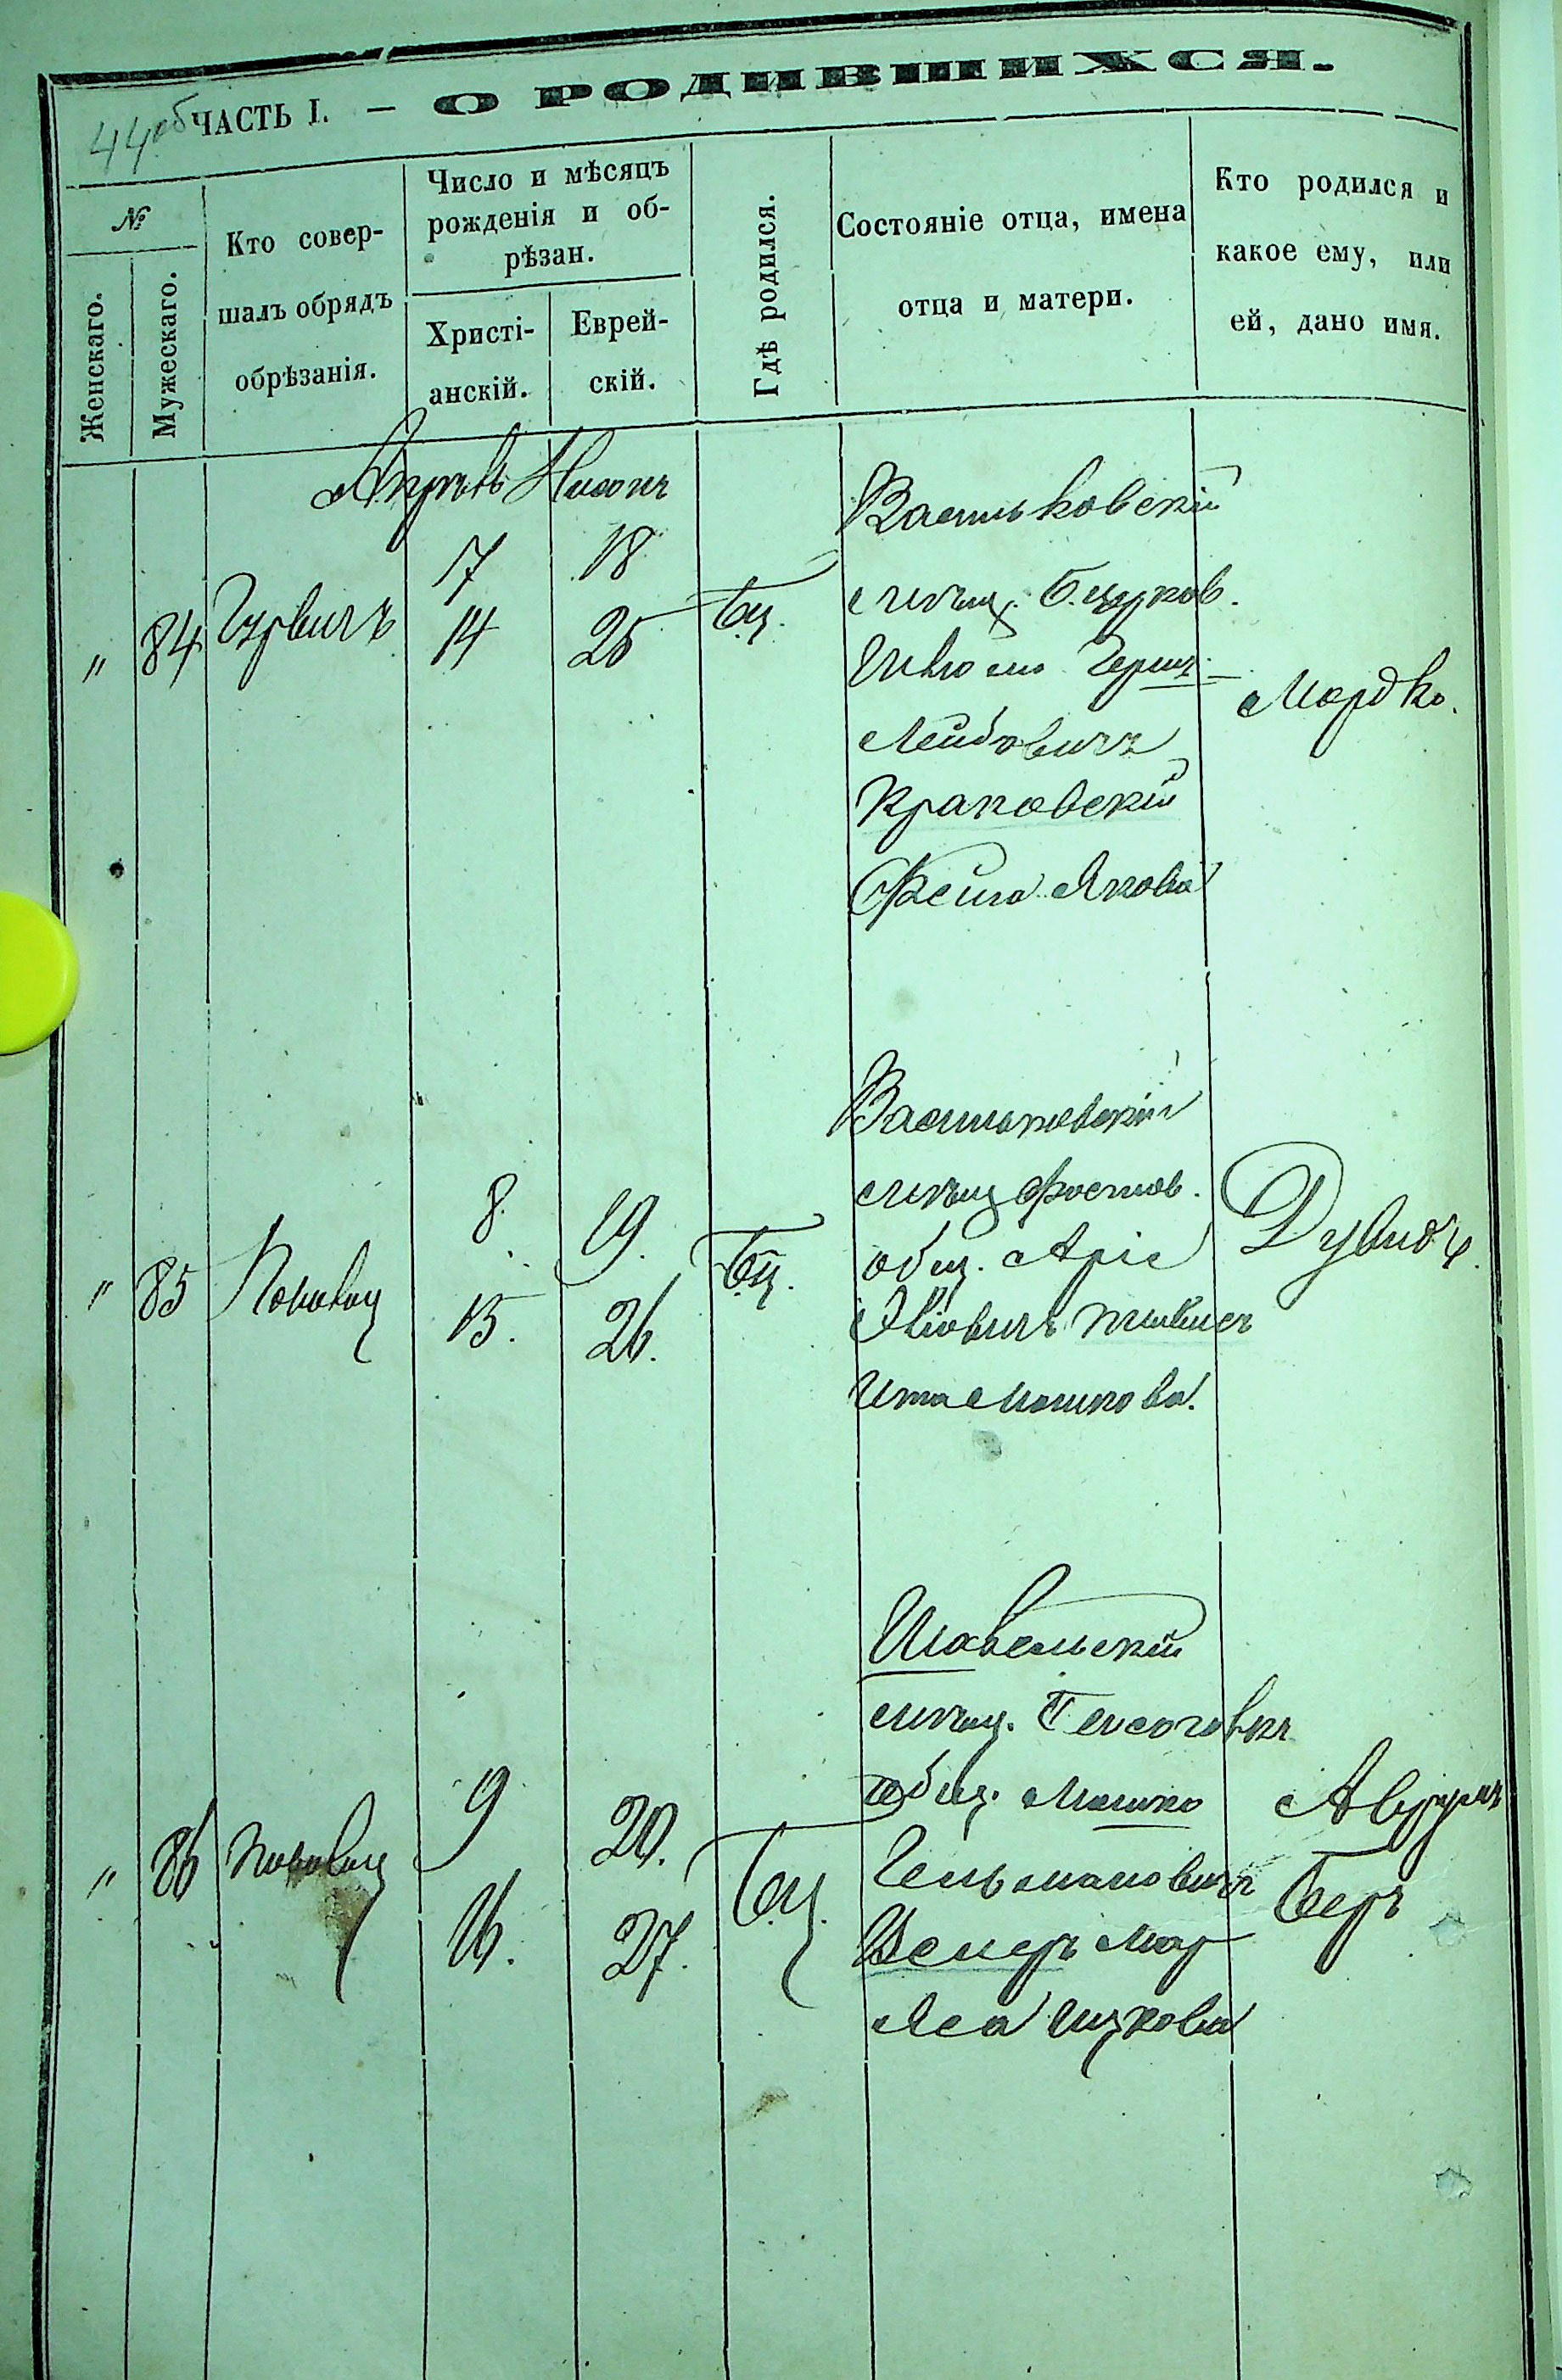 44об ЧАСТЬ I. — О РОДИВШИХСЯ.
№
Женскаго.
Мужескаго.
Кто совер-
шалъ обрядъ
обрѣзанія.
Число и мѣсяцъ
рожденія и об-
рѣзан.
Христі-
анскій.
Еврей-
скій.
Гдѣ родился.
Состояніе отца, имена
отца и матери.
Кто родился и
какое ему, или
ей, дано имя.
Апрѣль Нисонъ
" 84 Гурвичъ
7 18
14 25
Бц.
Васильковскій
мѣщ. Б. церков.
Шлема Герш-
Лейбовичъ
Краковскій
Фейга Якова
Мордко.
" 85
8. 19.
15. 26.
Бц.
Васильковскій
мѣщ. Фастов.
общ. Аріе
Ита Мошкова.
Дувидъ.
" 86
9 20.
16. 27.
Бц.
Шавельскій
мѣщ.
общ. Мошко
Гельмановичъ
Яса Ицкова
Аврумъ
Беръ